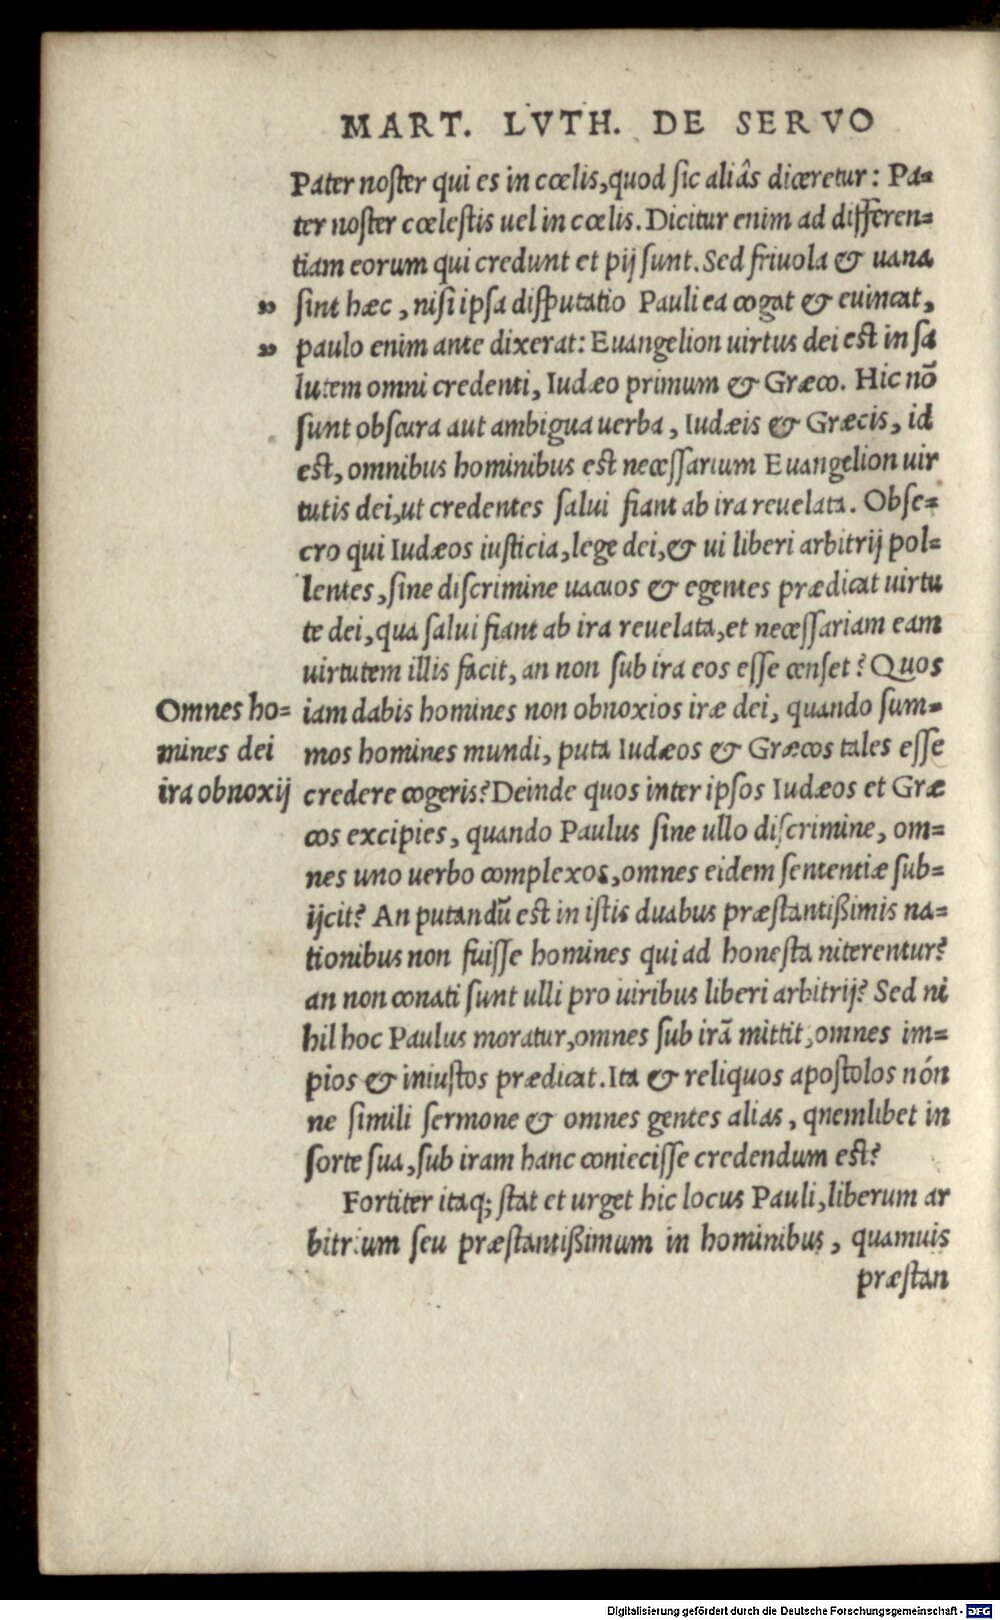 MART. LVTH. DE SERVO
Pater noſter qui es in cœlis, quod ſic aliâs diceretur: Pa=
ter noſter cœleſtis uel in cœlis. Dicitur enim ad differen=
tiam eorum qui credunt et pij ſunt. Sed friuola & uana
„ ſint hæc, niſi ipſa diſputatio Pauli ea cogat & euincat,
„ paulo enim ante dixerat: Euangelion uirtus dei eſt in ſa
lutem omni credenti, Iudæo primum & Græco. Hic nō
ſunt obſcura aut ambigua uerba, Iudæis & Græcis, id
eſt, omnibus hominibus eſt neceſſarium Euangelion uir
tutis dei, ut credentes ſalui fiant ab ira reuelata. Obſe=
cro qui Iudæos iuſticia, lege dei, & ui liberi arbitrij pol=
lentes, ſine diſcrimine uacuos & egentes prædicat uirtu
te dei, qua ſalui fiant ab ira reuelata, et neceſſariam eam
uirtutem illis facit, an non ſub ira eos eſſe cenſet? Quos
Omnes ho=
mines dei
ira obnoxij
iam dabis homines non obnoxios iræ dei, quando ſum=
mos homines mundi, puta Iudæos & Græcos tales eſſe
credere cogeris? Deinde quos inter ipſos Iudæos et Græ
cos excipies, quando Paulus ſine ullo diſcrimine, om=
nes uno uerbo complexos, omnes eidem ſententiæ ſub=
ijcit? An putandū eſt in iſtis duabus præſtantißimis na=
tionibus non fuiſſe homines qui ad honeſta niterentur?
an non conati ſunt ulli pro uiribus liberi arbitrij? Sed ni
hil hoc Paulus moratur, omnes ſub irā mittit, omnes im=
pios & iniuſtos prædicat. Ita & reliquos apoſtolos nón
ne ſimili ſermone & omnes gentes alias, qnemlibet in
ſorte ſua, ſub iram hanc conieciſſe credendum eſt?
Fortiter itaq; ſtat et urget hic locus Pauli, liberum ar
bitrium ſeu præſtantißimum in hominibus, quamuis
præſtan
Digitalisierung gefördert durch die Deutsche Forschungsgemeinschaft - DFG